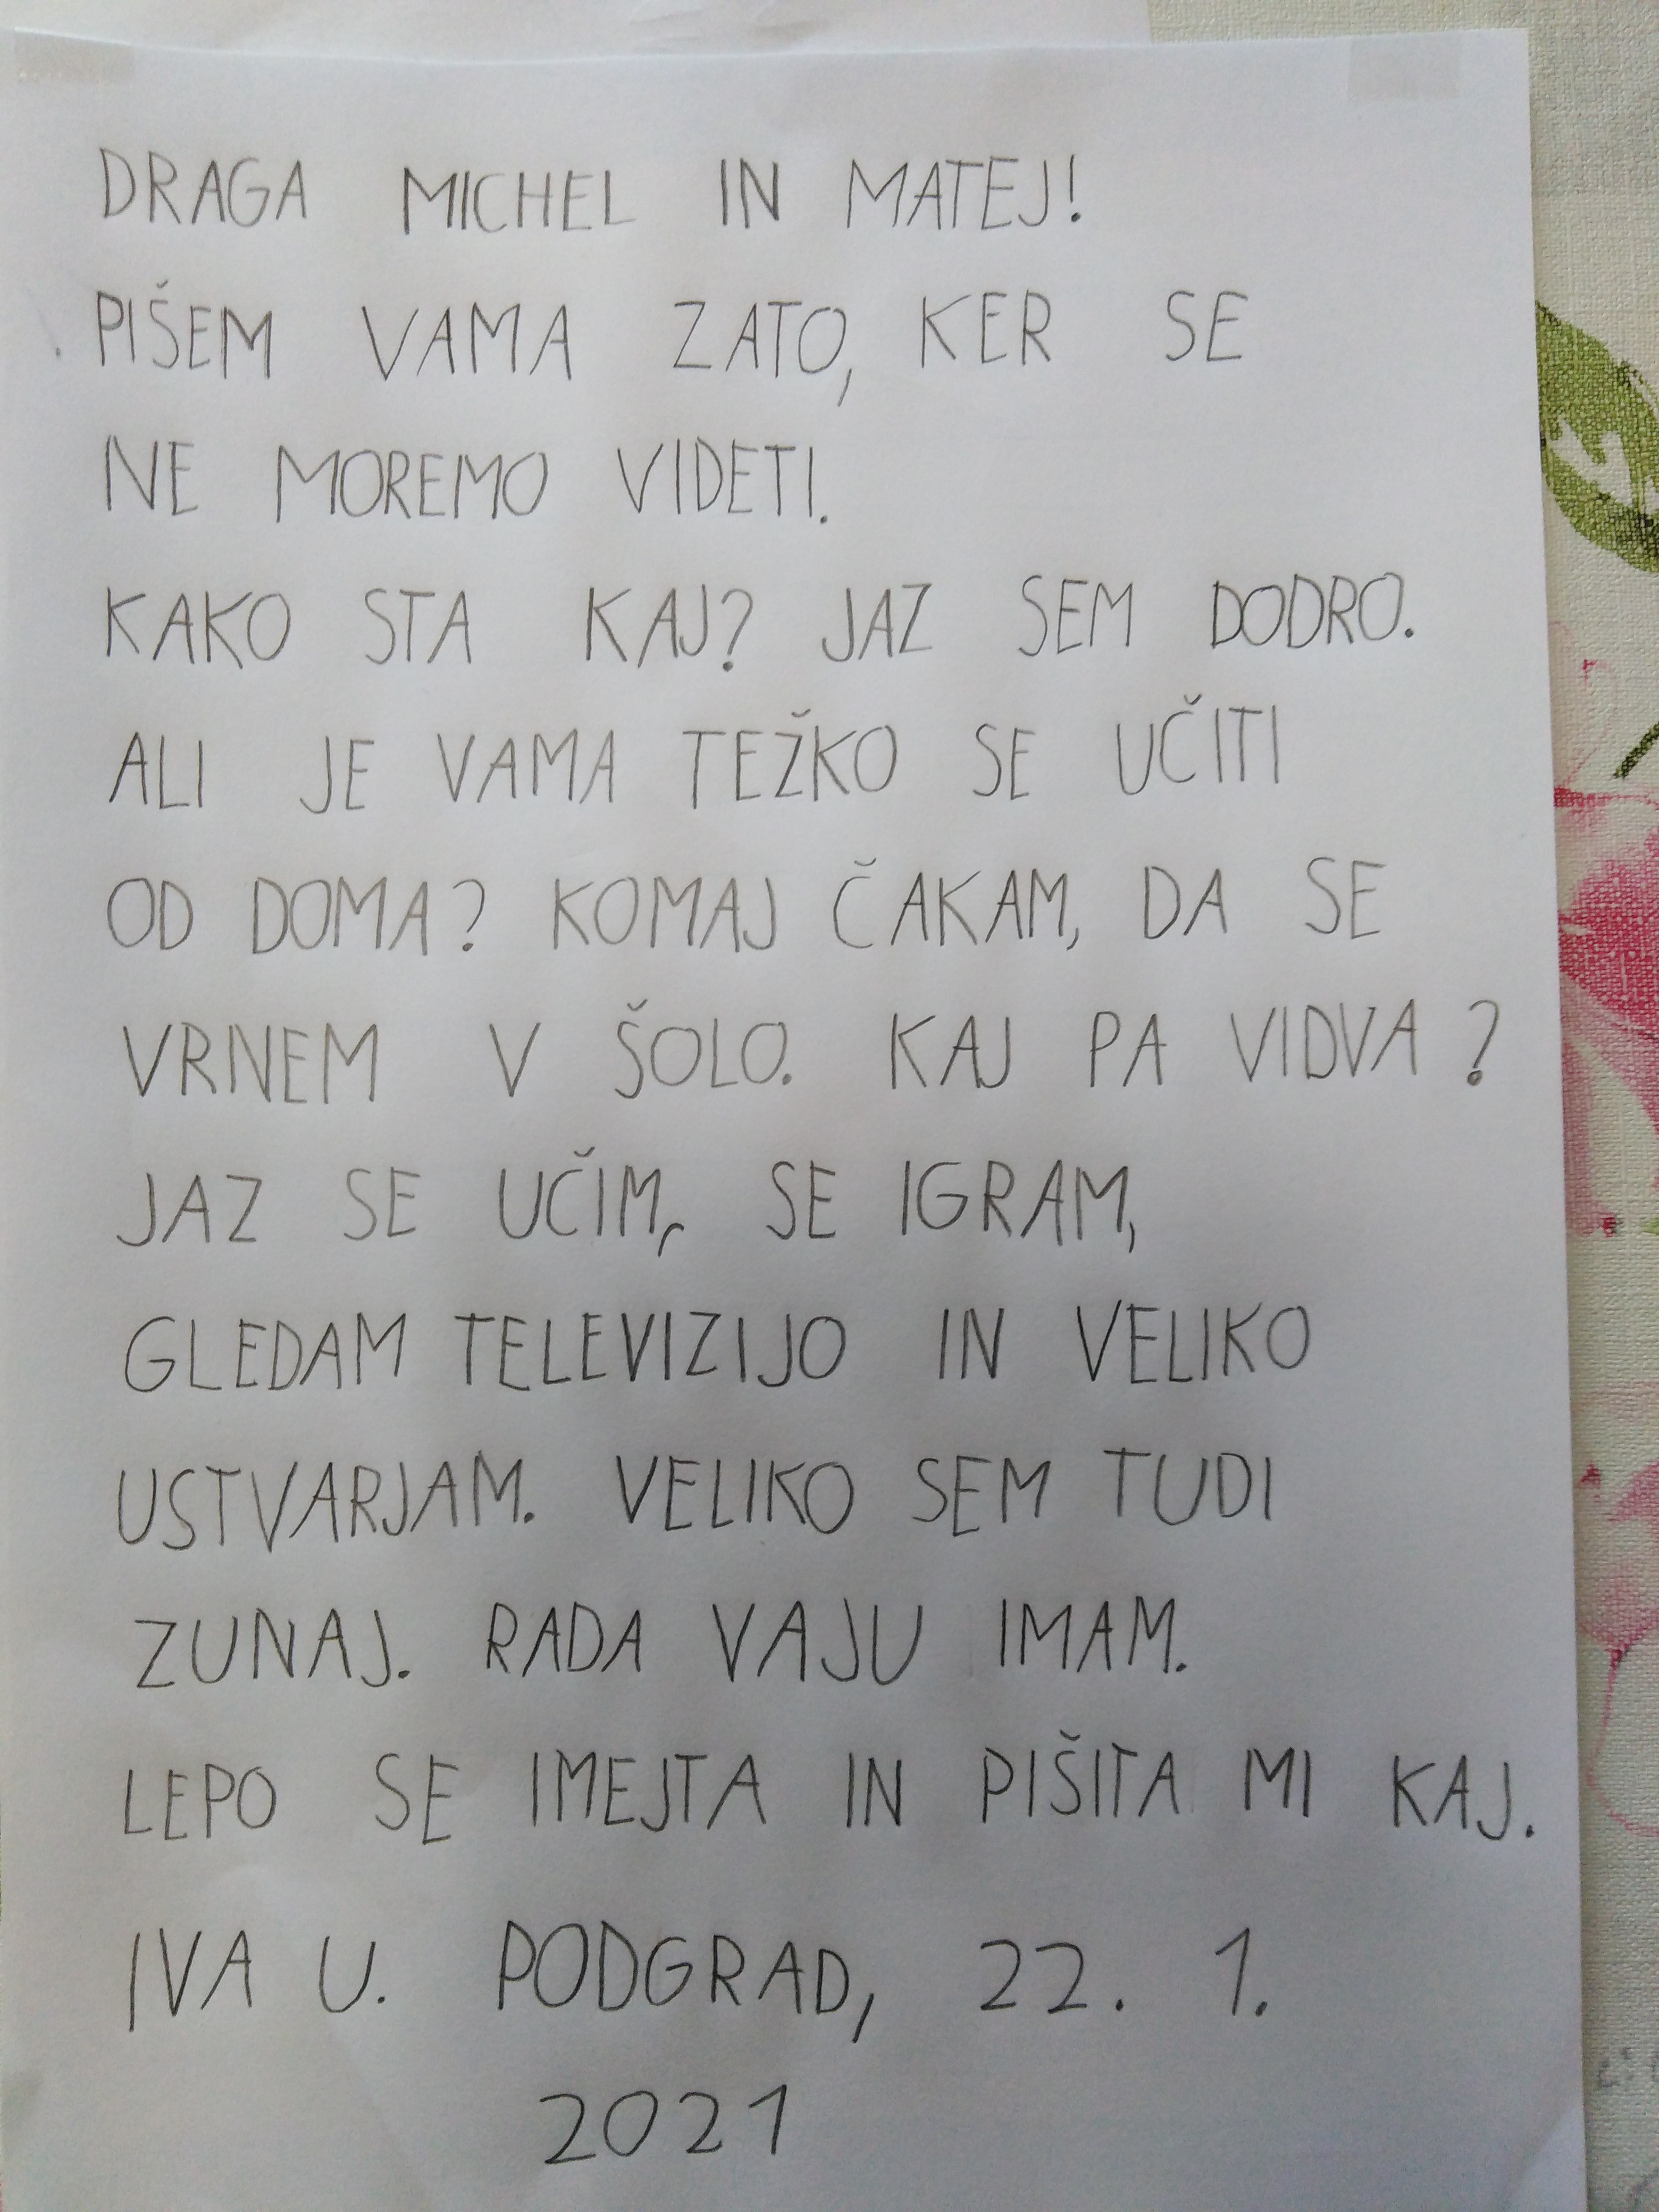 DRAGA MICHEL IN MATEJ!
PIŠEM VAMA ZATO, KER SE
NE MOREMO VIDETI.
KAKO STA KAJ? JAZ SEM DODRO.
ALI JE VAMA TEŽKO SE UČITI
OD DOMA? KOMAJ ČAKAM, DA SE
VRNEM V ŠOLO. KAJ PA VIDVA?
JAZ SE UČIM, SE IGRAM,
GLEDAM TELEVIZIJO IN VELIKO
USTVARJAM. VELIKO SEM TUDI
ZUNAJ. RADA VAJU IMAM.
LEPO SE IMEJTA IN PIŠITA MI KAJ.
IVA U. PODGRAD, 22. 1.
2021